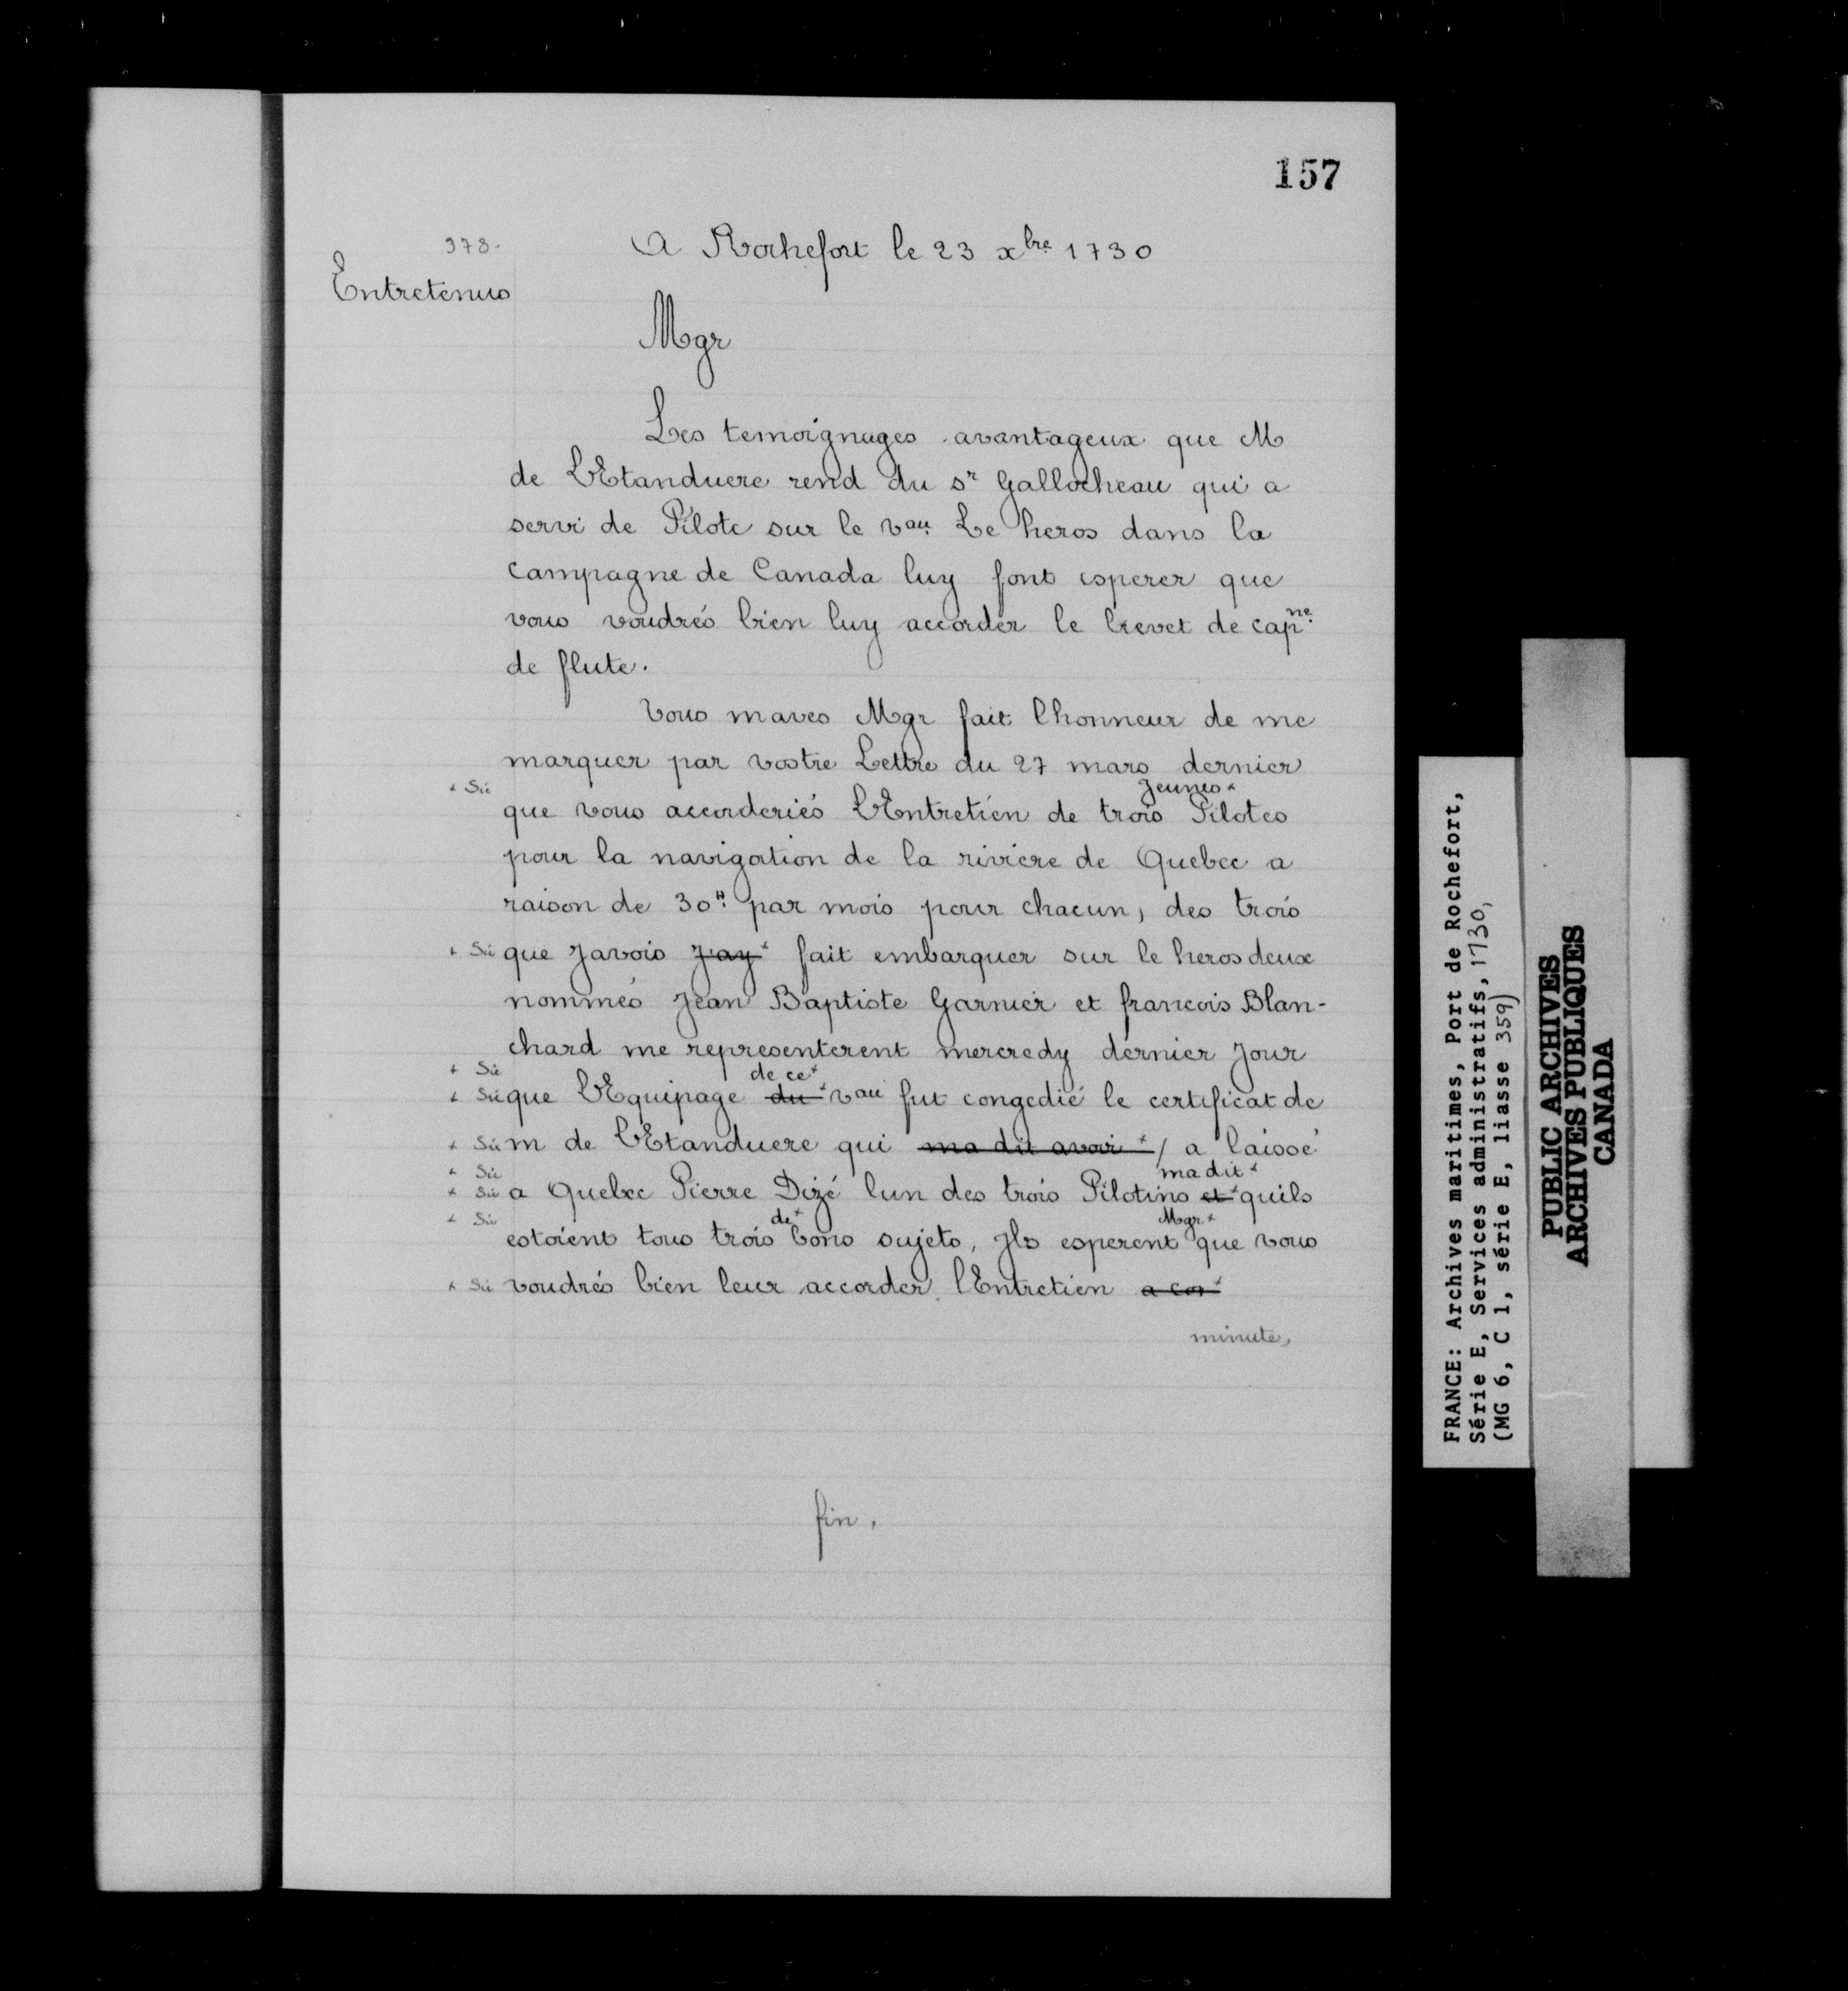 157
378.
A Rochefort le 23 xbre 1730
Entretenus
Mgr
Les temoignages avantageux que M
de LEtanduere rend du sr Gallocheau qui a
servi de Pilote sur le vau. Le heros dans la
campagne de Canada luy font esperer que
vous voudrés bien luy accorder le brevet de capne.
de flute.
Vous maves Mgr fait lhonneur de me
marquer par vostre Lettre du 27 mars dernier
+ Sic
Jeunes +
que vous accorderiés LEntretien de trois Pilotes
pour la navigation de la riviere de Quebec a
raison de 30# par mois pour chacun, des trois
+ Sic que Javois J'ay + fait embarquer sur le heros deux
nommés Jean Baptiste Garnier et francois Blan-
chard me representerent mercredy dernier Jour
+ Sic
de ce +
+ Sic que LEquipage du + vau fut congedié le certificat de
+ Sic m de LEtanduere qui ma dit avoir + / a laissé
+ Sic
ma dit +
+ Sic a Quebec Pierre Dizé lun des trois Pilotins et + quils
+ Sic
de +
Mgr +
estoient tous trois bons sujets, Jls esperent que vous
+ Sic voudrés bien leur accorder lEntretien a cor +
minute,
fin.
FRANCE: Archives maritimes, Port de Rochefort,
Série E, Services administratifs, 1730,
(MG 6, C 1, série E, liasse 359)
PUBLIC ARCHIVES
ARCHIVES PUBLIQUES
CANADA